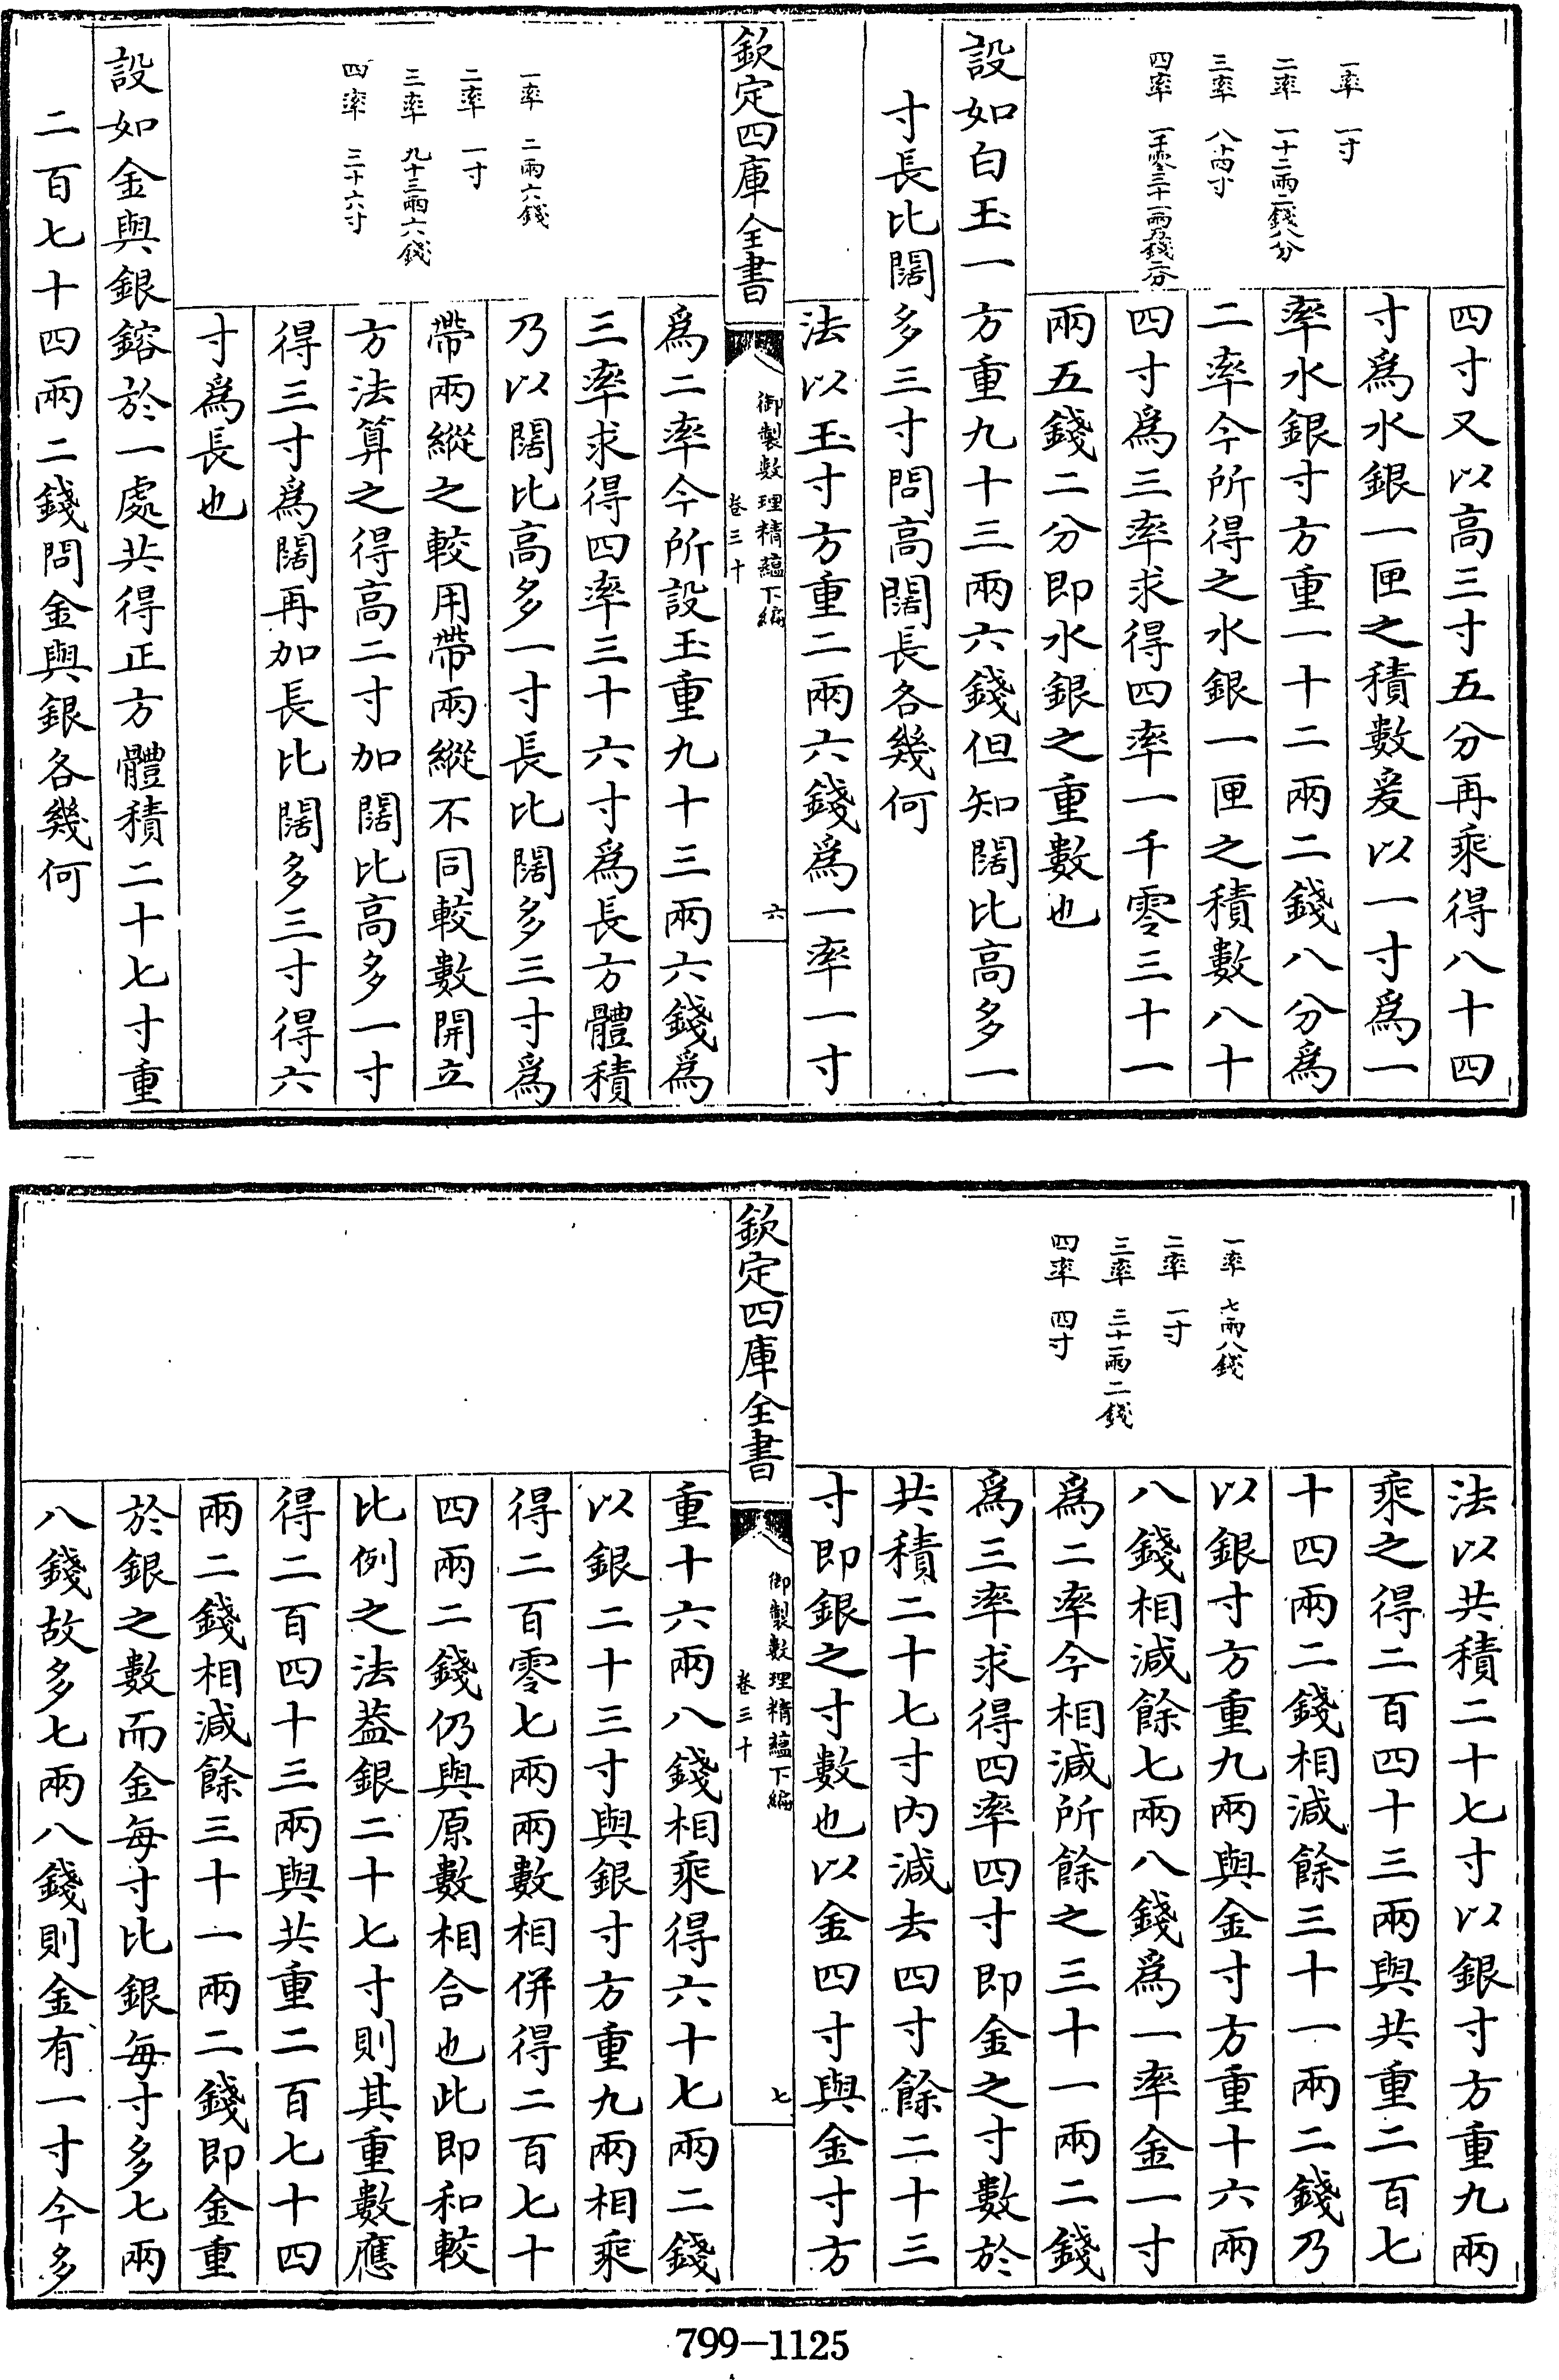 一率 一寸
二率 一十二兩二錢八分
三率 八十四寸
四率 一千零三十一兩五錢二分
四寸又以高三寸五分再乘得八十四
寸為水銀一匣之積數爰以一寸為一
率水銀寸方重一十二兩二錢八分為
二率今所得之水銀一匣之積數八十
四寸為三率求得四率一千零三十一
兩五錢二分即水銀之重數也
設如白玉一方重九十三兩六錢但知闊比高多一
寸長比闊多三寸問高闊長各幾何
法以玉寸方重二兩六錢為一率一寸
欽定四庫全書
御製數理精蘊下編
卷三十
六
一率 二兩六錢
二率 一寸
三率 九十三兩六錢
四率 三十六寸
為二率今所設玉重九十三兩六錢為
三率求得四率三十六寸為長方體積
乃以闊比高多一寸長比闊多三寸為
帶兩縱之較用帶兩縱不同較數開立
方法算之得高二寸加闊比高多一寸
得三寸為闊再加長比闊多三寸得六
寸為長也
設如金與銀鎔於一處共得正方體積二十七寸重
二百七十四兩二錢問金與銀各幾何
一率 七兩八錢
二率 一寸
三率 三十一兩二錢
四率 四寸
法以共積二十七寸以銀寸方重九兩
乘之得二百四十三兩與共重二百七
十四兩二錢相減餘三十一兩二錢乃
以銀寸方重九兩與金寸方重十六兩
八錢相減餘七兩八錢為一率金一寸
為二率今相減所餘之三十一兩二錢
為三率求得四率四寸即金之寸數於
共積二十七寸內減去四寸餘二十三
寸即銀之寸數也以金四寸與金寸方
欽定四庫全書
御製數理精蘊下編
卷三十
七
重十六兩八錢相乘得六十七兩二錢
以銀二十三寸與銀寸方重九兩相乘
得二百零七兩兩數相併得二百七十
四兩二錢仍與原數相合也此即和較
比例之法葢銀二十七寸則其重數應
得二百四十三兩與共重二百七十四
兩二錢相減餘三十一兩二錢即金重
於銀之數而金每寸比銀每寸多七兩
八錢故多七兩八錢則金有一寸今多
799-1125